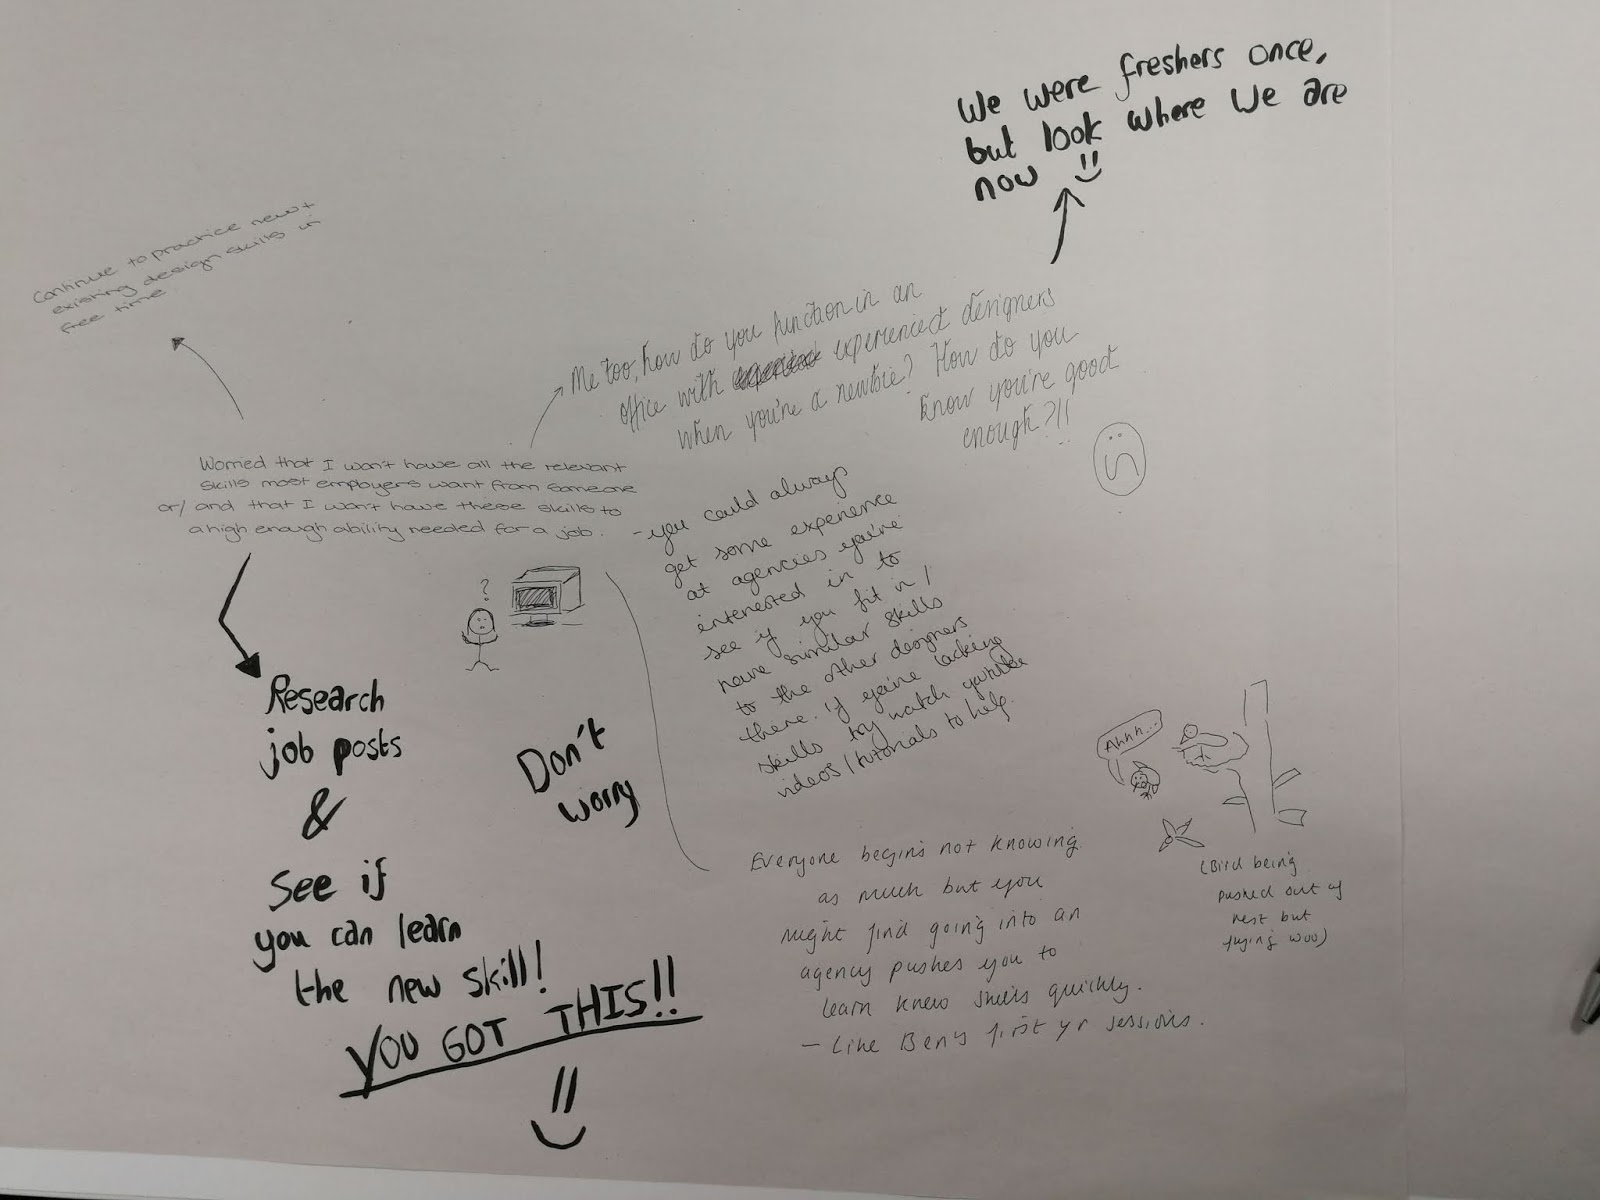 We were freshers once,
but look where we are
now
Continue to practice new +
existing design skills in
free time
Me too, how do you function in an
office with experienced designers
when you're a newbie? How do you
know you're good
enough?!!
Worried that I won't have all the relevant
skills most employers want from someone
or/ and that I won't have these skills to
a high enough ability needed for a job.
- you could always
get some experience
at agencies you're
interested in to
see if you fit in /
have similar skills
to the other designers
there. If you're lacking
skills try watch youtube
videos / tutorials to help.
?
Research
job posts
&
See if
you can learn
the new skill!
YOU GOT THIS!!
Don't
worry
Everyone begins not knowing
as much but you
might find going into an
agency pushes you to
learn knew skills quickly.
- Like Ben's first yr sessions.
Ahhh...
(Bird being
pushed out of
nest but
flying woo)